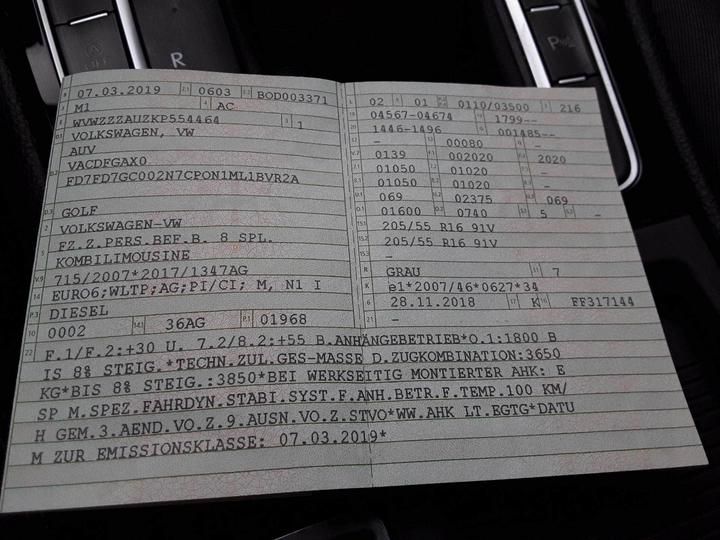 R
P
07.03.2019 0603 BOD003371
M1 AC
WVWZZZAUZKP554464 1
VOLKSWAGEN, VW
AUV
VACDFGAX0
FD7FD7GC002N7CPON1ML1BVR2A
GOLF
VOLKSWAGEN-VW
FZ.Z.PERS.BEF.B. 8 SPL.
KOMBILIMOUSINE
715/2007*2017/1347AG
EURO6;WLTP;AG;PI/CI; M, N1 I
DIESEL
0002 36AG 01968
02 01 0110/03500 216
04567-04674 1799--
1446-1496 001485--
- 00080 -
0139 002020 2020
01050 01020 -
01050 01020 -
069 02375 069
01600 0740 5 -
205/55 R16 91V
205/55 R16 91V
-
GRAU 7
e1*2007/46*0627*34
28.11.2018 K FF317144
-
F.1/F.2:+30 U. 7.2/8.2:+55 B.ANHÄNGEBETRIEB*O.1:1800 B
IS 8% STEIG.*TECHN.ZUL.GES-MASSE D.ZUGKOMBINATION:3650
KG*BIS 8% STEIG.:3850*BEI WERKSEITIG MONTIERTER AHK: E
SP M.SPEZ.FAHRDYN.STABI.SYST.F.ANH.BETR.F.TEMP.100 KM/
H GEM.3.AEND.VO.Z.9.AUSN.VO.Z.STVO*WW.AHK LT.EGTG*DATU
M ZUR EMISSIONSKLASSE: 07.03.2019*